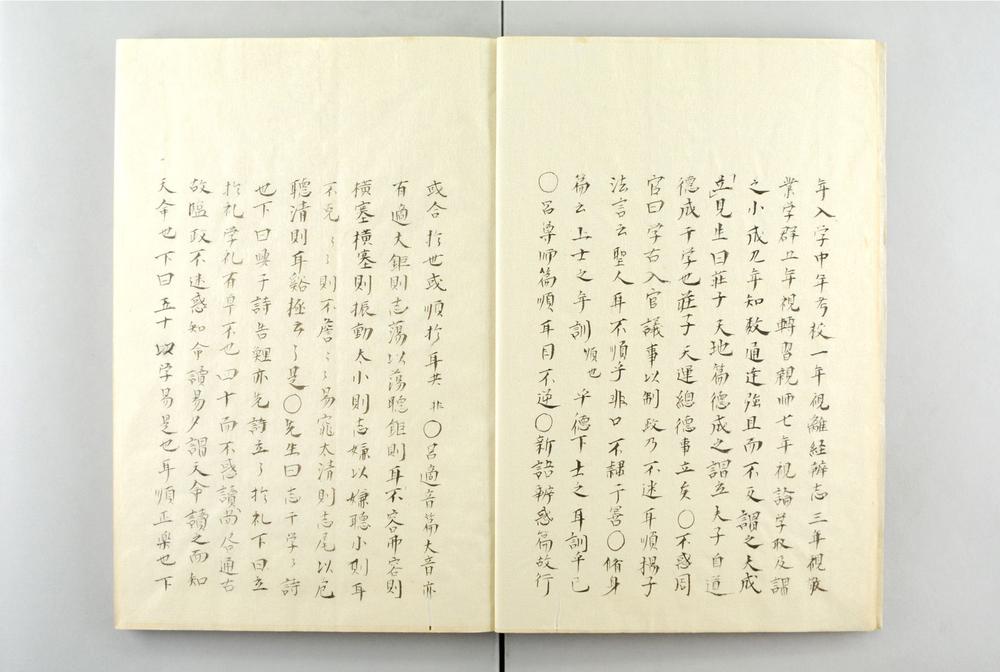 年入学中年考校一年視離経辨志三年視敬
業学群五年視轉習親师七年視論学取友謂
之小成九年知数通達強且而不反謂之大成
立見生曰莊子天地篇德成之謂立夫子自道
德成于学也莊子天運總德事立矣〇不惑周
官曰学古入官議事以制政乃不迷耳順揚子
法言云聖人耳不順乎非口不肄于善〇脩身
篇云上士之耳訓順也乎德下士之耳訓乎己
〇呂导师篇順耳目不逆〇新語辨惑篇故行
或合於世或順於耳共非〇呂適音篇大音亦
有適大鉅則志荡以荡聴鉅則耳不容不容則
横塞横塞則振動太小則志嫌以嫌聴小則耳
不充〻〻則不詹〻〻易窕太清則志危以危
聴清則耳谿极云〻是〇先生曰志于学〻詩
也下曰興于詩告鯉亦先詩立〻於礼下曰立
於礼学礼有卓不也四十而不惑讀尚書通古
故臨政不迷惑知命讀易夕謂天命讀之而知
天命也下曰五十以学易是也耳順正楽也下